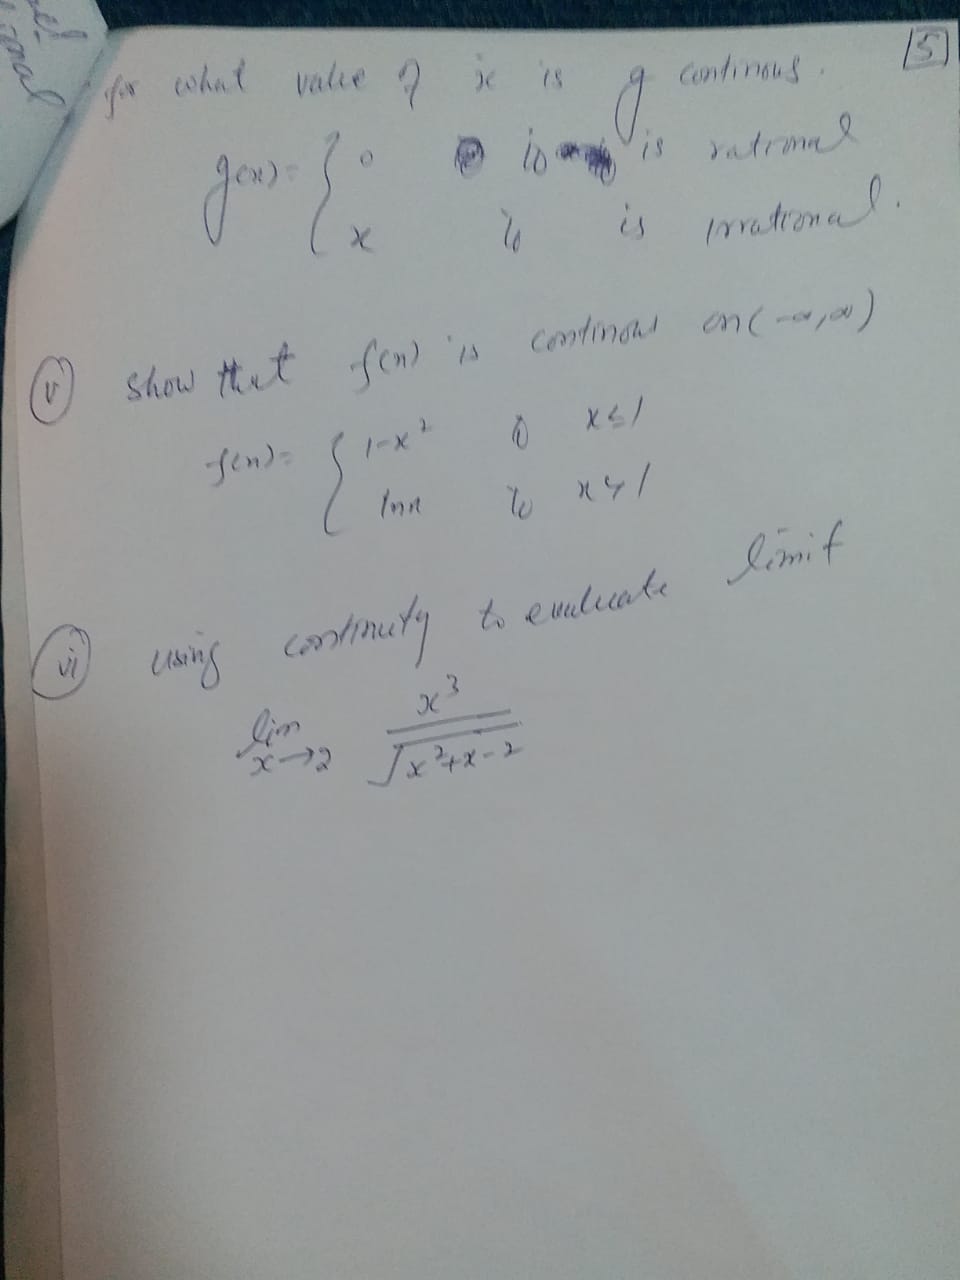 5
for what value of x is g continous.
g(x) = { 0 if is rational
x if is irrational.
(v) show that f(x) is continous on (-∞, ∞)
f(x) = { 1-x² if x ≤ 1
lnx if x > 1
(vi) using continuty to evaluate limit
lim x→2 x³ / √x²+x-2